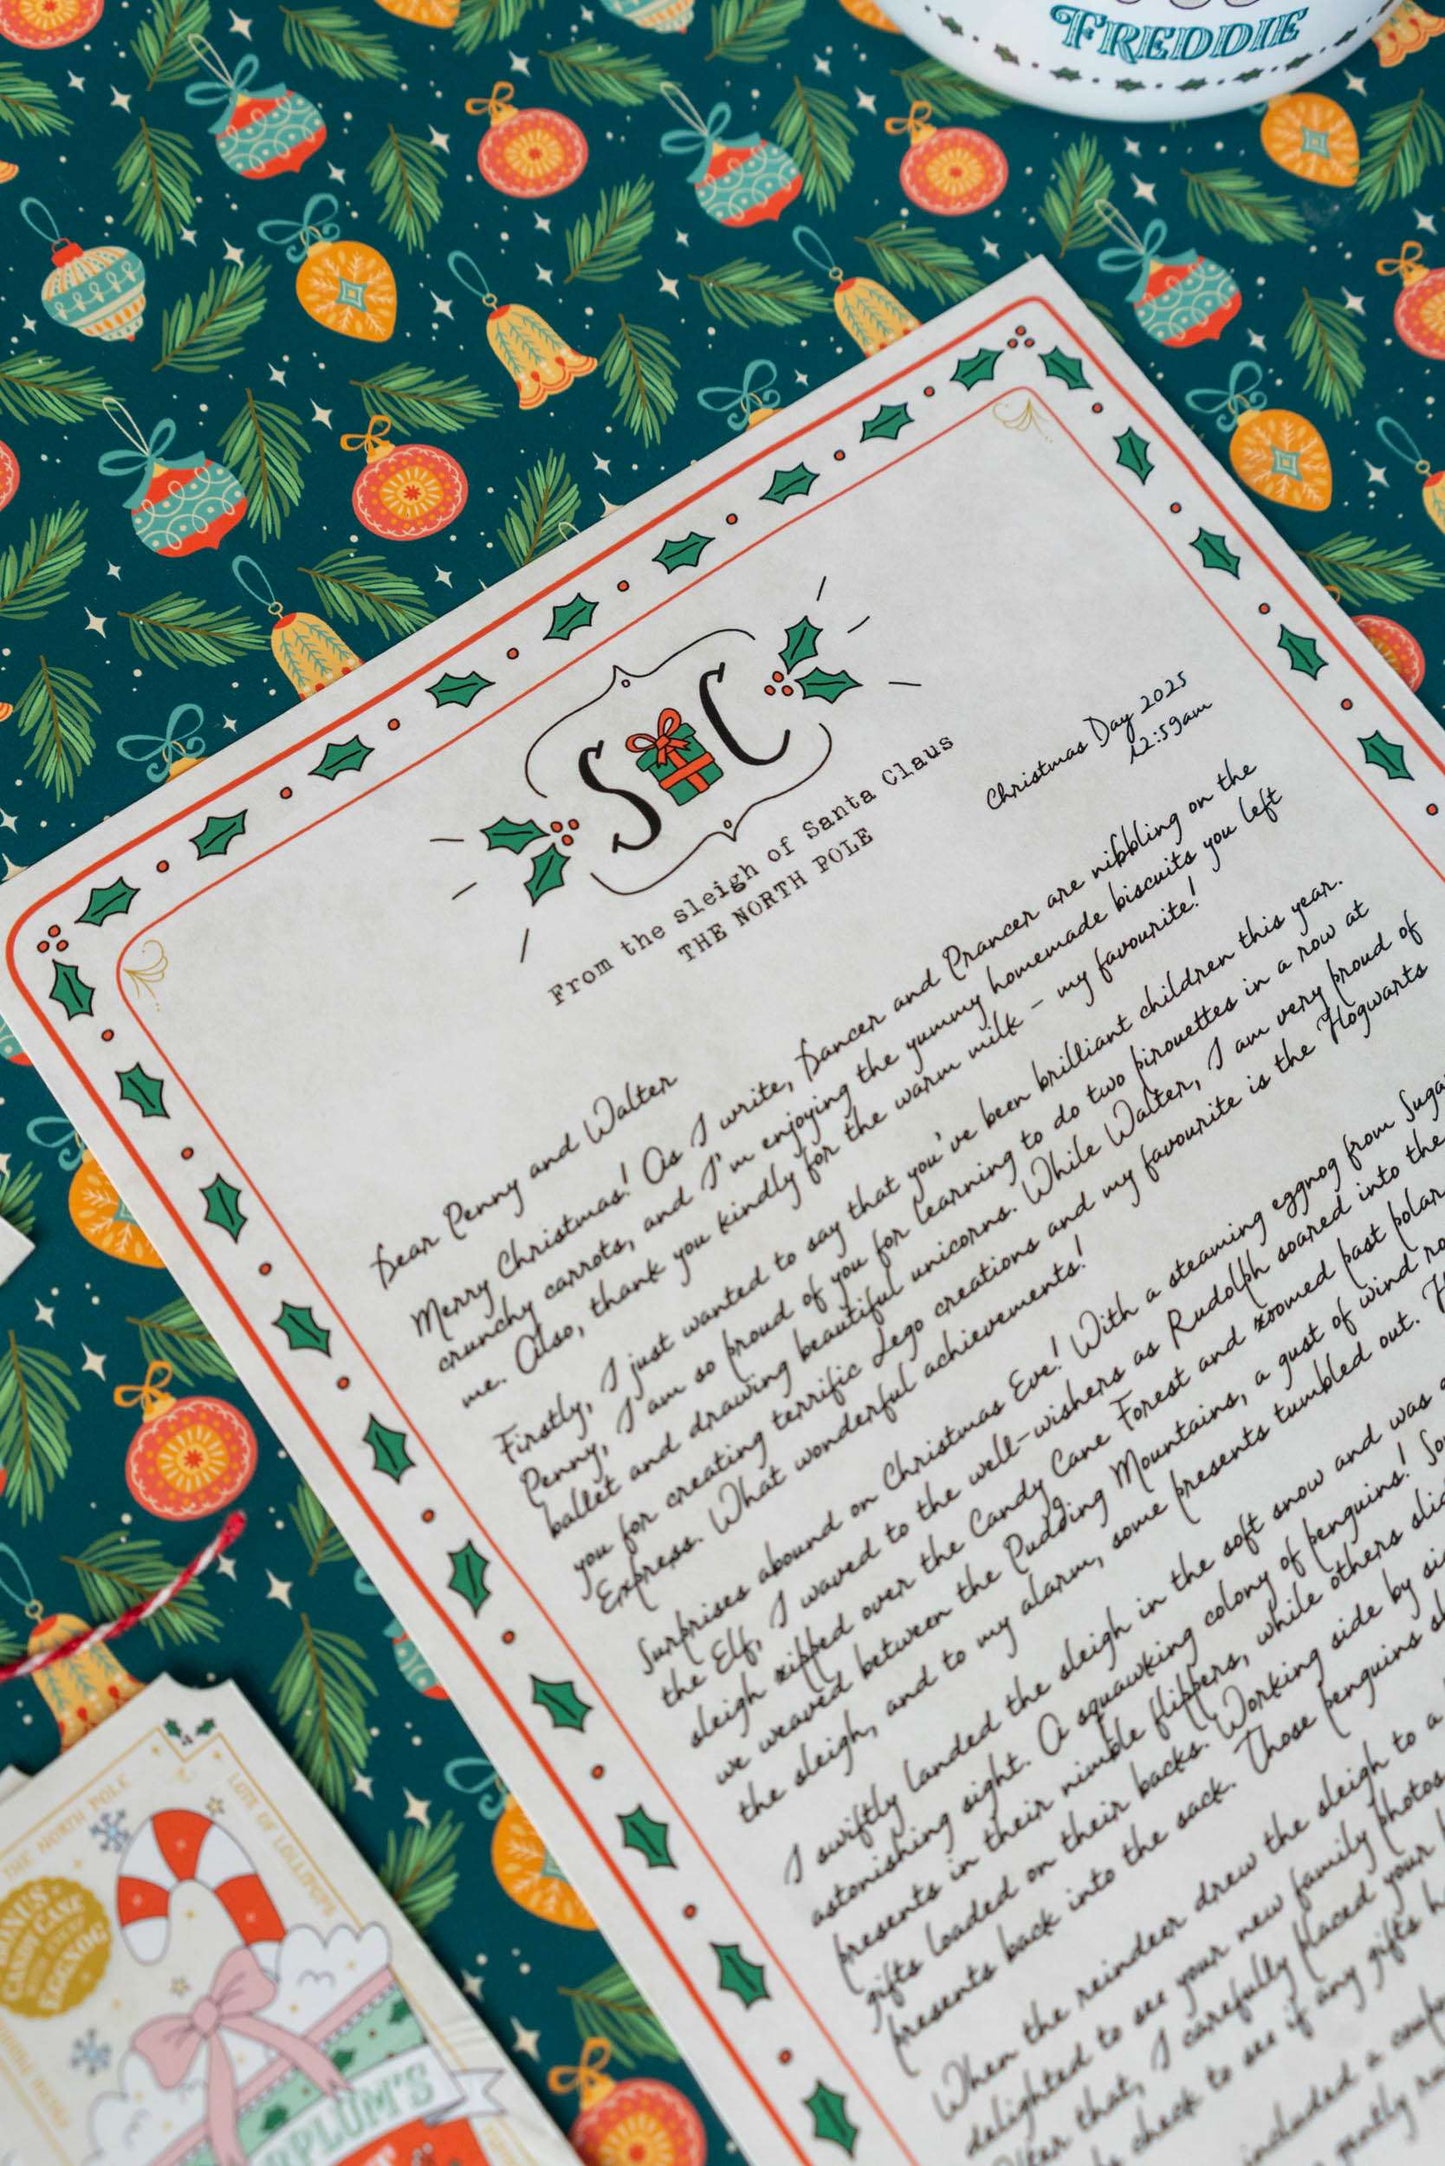 FREDDIE
S C
From the sleigh of Santa Claus
THE NORTH POLE
Christmas Day 2025
12:59am
Dear Penny and Walter
Merry Christmas! As I write, Dancer and Prancer are nibbling on the
crunchy carrots, and I'm enjoying the yummy homemade biscuits you left
me. Also, thank you kindly for the warm milk - my favourite!
Firstly, I just wanted to say that you've been brilliant children this year.
Penny, I am so proud of you for learning to do two pirouettes in a row at
ballet and drawing beautiful unicorns. While Walter, I am very proud of
you for creating terrific Lego creations and my favourite is the Hogwarts
Express. What wonderful achievements!
Surprises abound on Christmas Eve! With a steaming eggnog from Sugar
the Elf, I waved to the well-wishers as Rudolph soared into the
sleigh zipped over the Candy Cane Forest and zoomed past polar
we weaved between the Pudding Mountains, a gust of wind
the sleigh, and to my alarm, some presents tumbled out.
I swiftly landed the sleigh in the soft snow and was
astonishing sight. A squawking colony of penguins!
presents in their nimble flippers, while others
gifts loaded on their backs. Working side by
presents back into the sack. Those penguins
When the reindeer drew the sleigh to a
delighted to see your new family photos
After that, I carefully placed your
check to see if any gifts
included a
gently
THE NORTH POLE
LOTS OF LOLLIPOPS
BONUS
CANDY CANE
EGGNOG